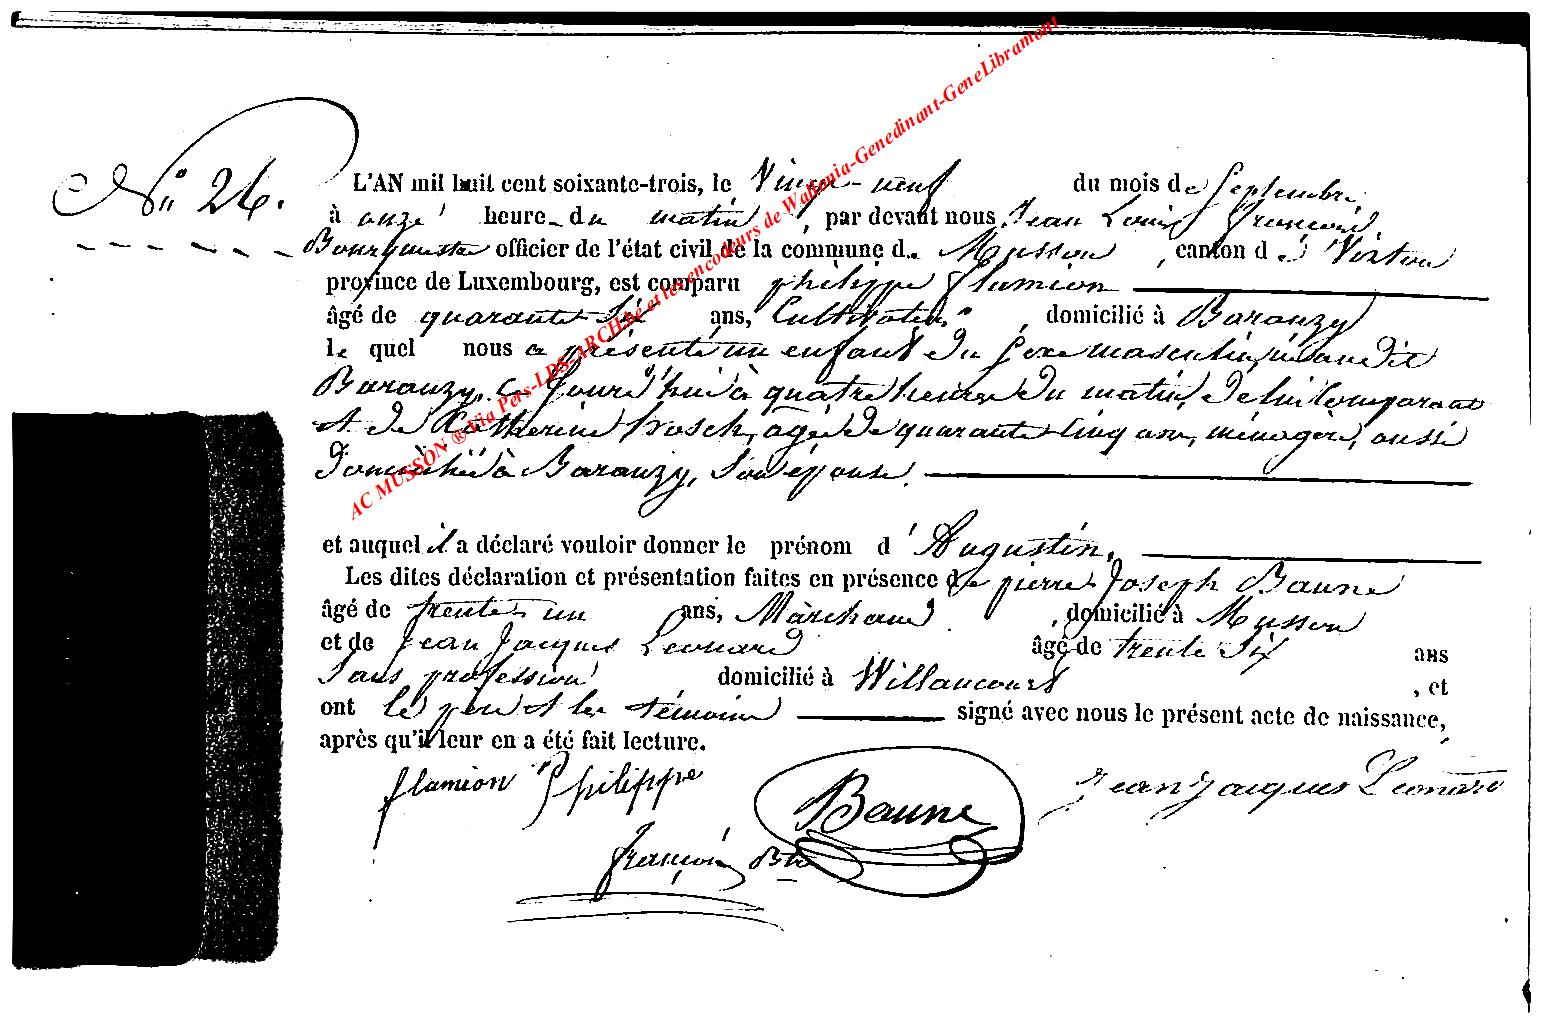 N° 26.
L'AN mil huit cent soixante-trois, le Vingt-neuf du mois de Septembre,
à onze heure du matin, par devant nous Jean Louis François,
Bourgmestre officier de l'état civil de la commune de Musson, canton de Virton
province de Luxembourg, est comparu philippe flamion
âgé de quarante Six ans, Cultivateur, domicilié à Baranzy
le quel nous a présenté un enfant du Sexe masculin, né audit
Baranzy, ce Jourd'hui à quatre heures du matin, de lui Comparant
et de Katherine hosch, agée de quarante Cinq ans, ménagère, aussi
Domiciliée à Baranzy, Son épouse.
et auquel il a déclaré vouloir donner le prénom d'Augustin,
Les dites déclaration et présentation faites en présence de pierre Joseph Baune
âgé de trente un ans, Marchand, domicilié à Musson
et de Jean Jacques Leonard âgé de trente Six ans
Sans profession domicilié à Willancourt, et
ont le père et les témoins signé avec nous le présent acte de naissance,
après qu'il leur en a été fait lecture.
flamion Philippe
Baune
Jean Jacques Leonard
françois
AC MUSSON ® Via Pers-LDS-ARCH.be et les encodeurs de Wallonia-Genedinant-GeneLibramont